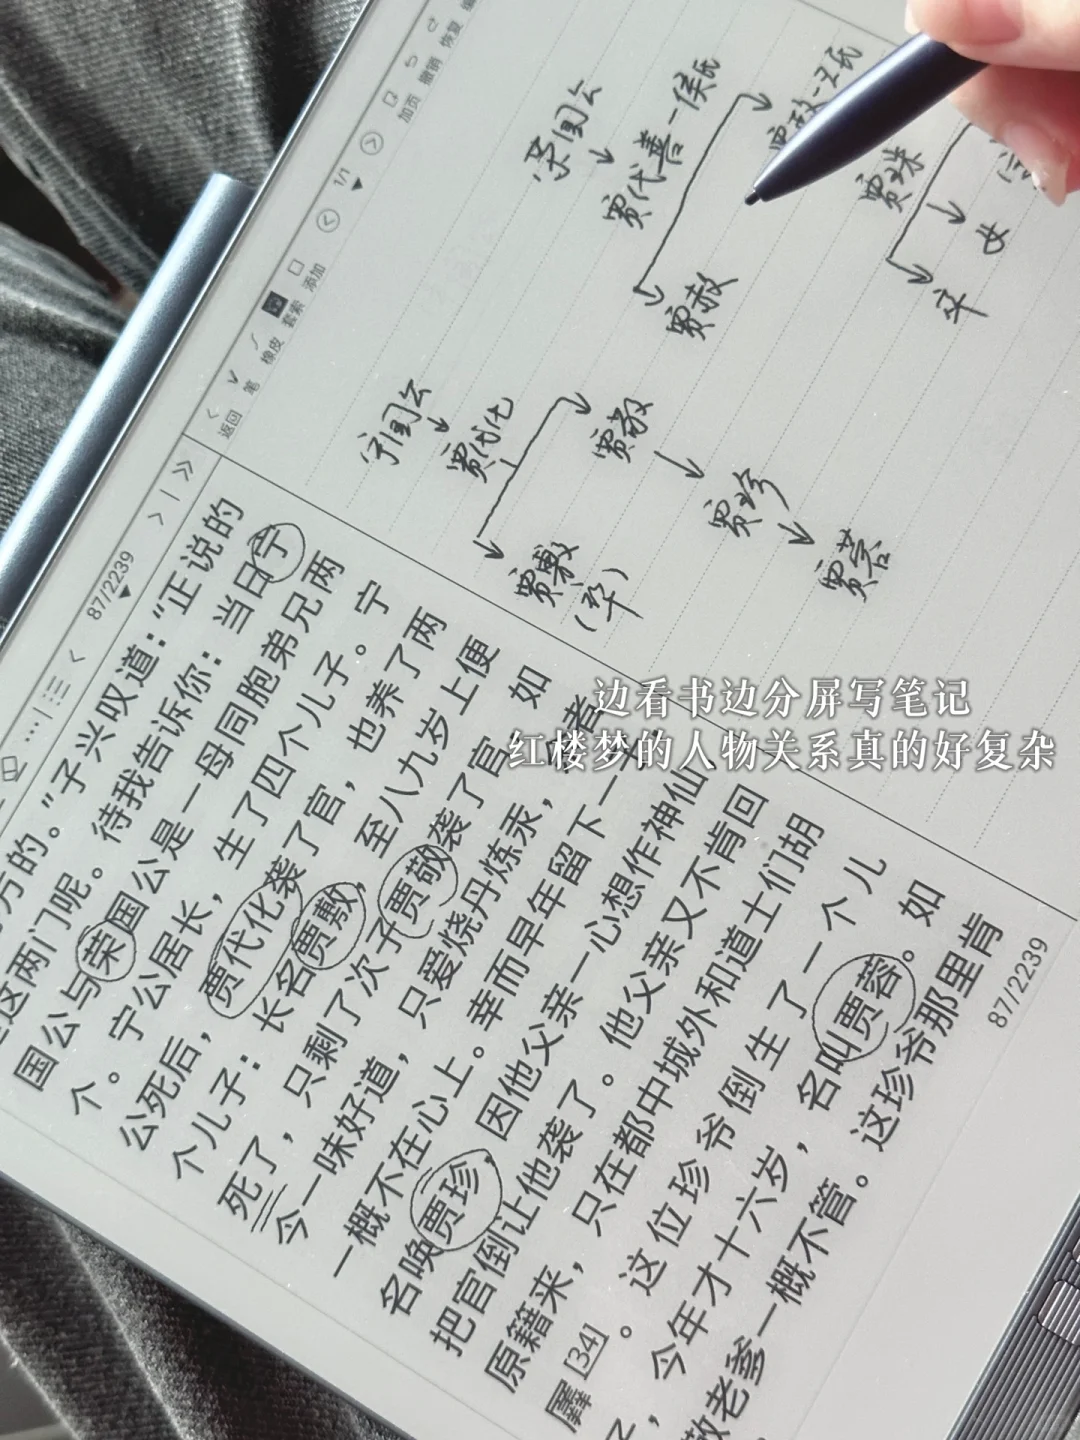 边看书边分屏写笔记
红楼梦的人物关系真的好复杂
返回
笔
橡皮
套索
添加
1/1
加页
撤销
恢复
荣国公
贾代善一侯氏
贾赦
贾珠
女
卒
宁国公
贾代化
贾敷
(卒)
贾敬
贾珍
贾蓉
87/2239
方的。”子兴叹道：“正说的
这两门呢。待我告诉你：当日宁
国公与荣国公是一母同胞弟兄两
个。宁公居长，生了四个儿子。宁
公死后，贾代化袭了官，也养了两
个儿子：长名贾敷，至八九岁上便
死了，只剩了次子贾敬袭了官，如
今一味好道，只爱烧丹炼汞，
一概不在心上。幸而早年留下一
名唤贾珍，因他父亲一心想作神仙，
把官倒让他袭了。他父亲又不肯回
原籍来，只在都中城外和道士们胡
羼[34]。这位珍爷倒生了一个儿
，今年才十六岁，名叫贾蓉。如
敬老爹一概不管。这珍爷那里肯
87/2239